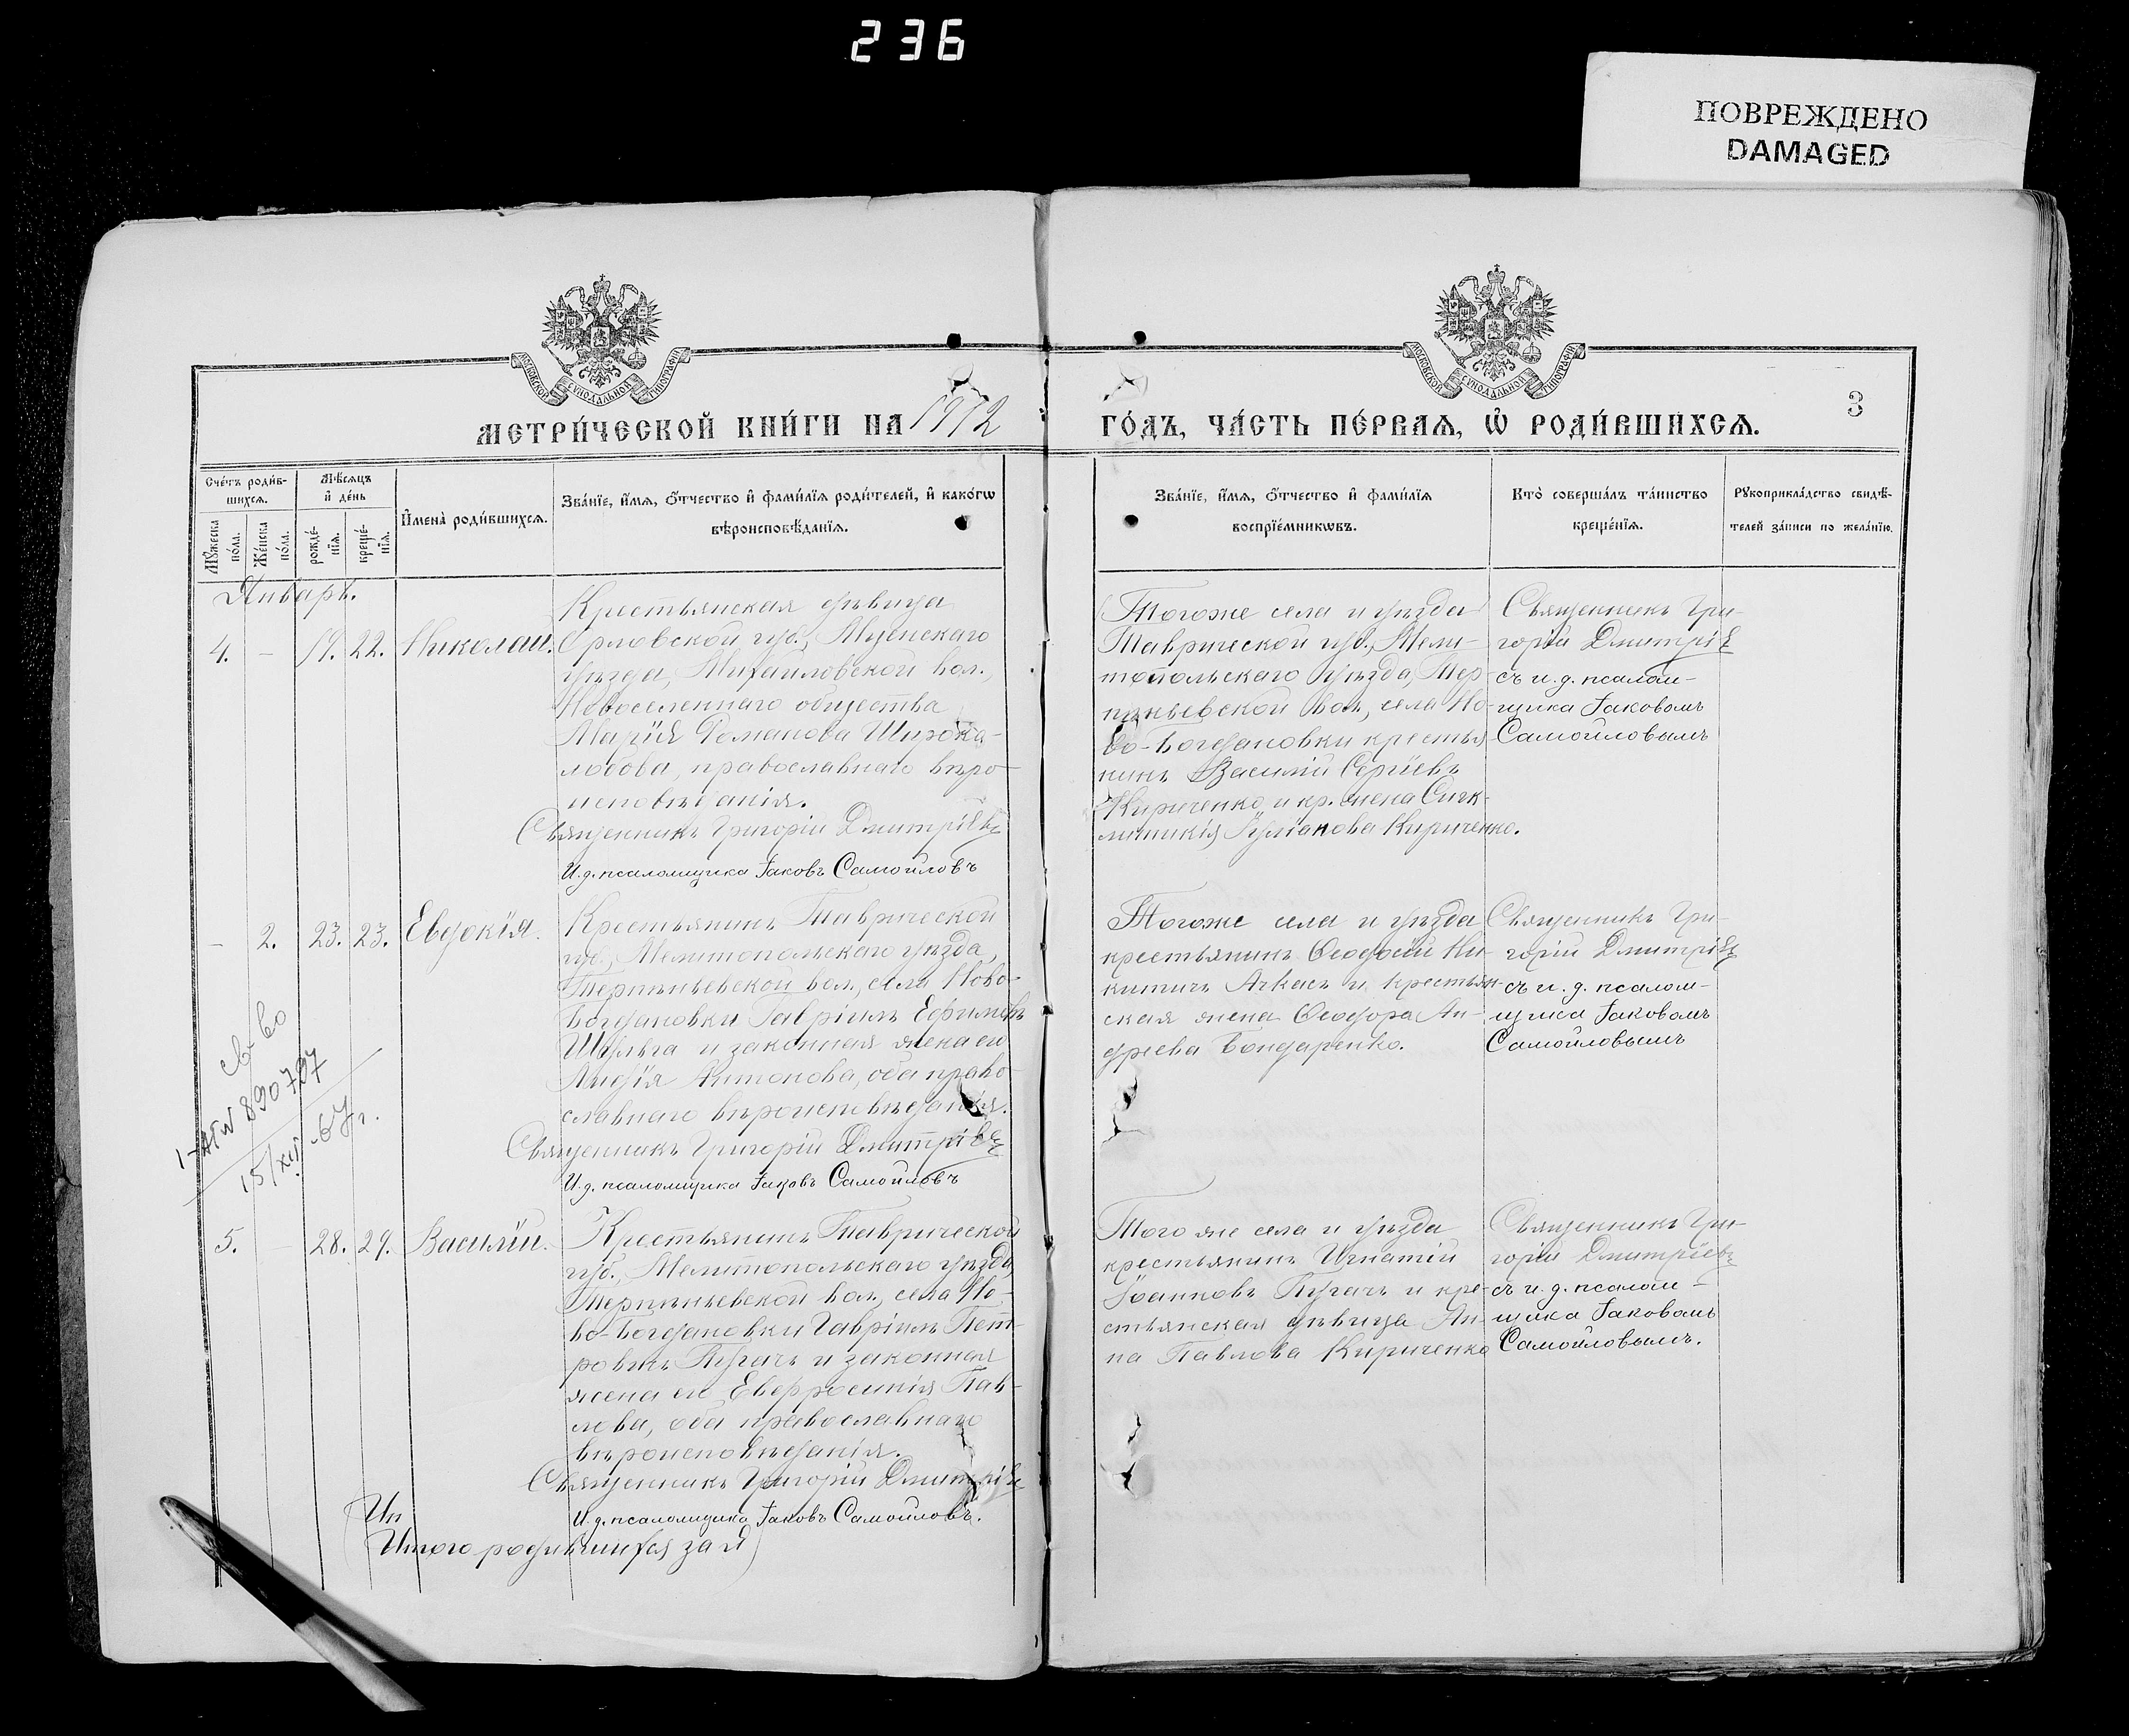 236
ПОВРЕЖДЕНО
DAMAGED
МОСКОВСКОЙ СѴНОДАЛЬНОЙ ТИПОГРАФІИ
МОСКОВСКОЙ СѴНОДАЛЬНОЙ ТИПОГРАФІИ
МЕТРИ́ЧЕСКОЙ КНИ́ГИ НА 1912
ГО́ДЪ, ЧА́СТЬ ПЕ́РВАЯ, Ѡ РОДИ́ВШИХСЯ.
3
Сче́тъ роди́в-
шихся.
Мѣ́сяцъ
и҆ де́нь
Мꙋ́жеска
по́ла.
Же́нска
по́ла.
рожде́-
нїя.
креще́-
нїя.
И҆мена̀ роди́вшихся.
Зва́нїе, и҆́мя, ѻ҆́тчество и҆ фами́лїя роди́телей, и҆ како́гѡ
вѣроисповѣ́данїя.
Зва́нїе, и҆́мя, ѻ҆́тчество и҆ фами́лїя
воспрїе́мникѡвъ.
Кто̀ соверша́лъ та́инство
креще́нїя.
Рꙋкоприкла́дство свидѣ́-
телей за́писи по жела́нїю.
Январь.
4.
-
19.
22.
Николай.
Крестьянская дѣвица
Орловской губ., Мценскаго
уѣзда, Михайловской вол.,
Новоселеннаго общества
Марія Романова Широко-
лобова, православнаго вѣро-
исповѣданія.
Священникъ Григорій Дмитріевъ
И.д. псаломщика Іаковъ Самойловъ
Тогоже села и уѣзда
Таврической губ., Мели-
топольскаго уѣзда, Тер-
пѣньевской вол., села Но-
во-Богдановки крестья
нинъ Василій Сергіевъ
Кириченко и кр. жена Синк-
литикія Кириченко.
Священникъ Гри-
горій Дмитріевъ
съ и. д. псалом-
щика Іаковомъ
Самойловымъ
-
2.
23.
23.
Евдокія.
Крестьянинъ Таврической
губ., Мелитопольскаго уѣзда,
Терпѣньевской вол., села Ново-
Богдановки Гавріилъ Ефимовъ
Шульга и законная жена его
Лидія Антонова, оба право-
славнаго вѣроисповѣданія.
Священникъ Григорій Дмитріевъ
И.д. псаломщика Іаковъ Самойловъ
Тогоже села и уѣзда
крестьянинъ Ѳеодосій Ни-
китинъ Аткасъ и крестьян-
ская жена Ѳеодора Ан-
дреева Бондаренко.
Священникъ Гри-
горій Дмитріевъ
съ и. д. псалом-
щика Іаковомъ
Самойловымъ
св-во
890797
15/XII-67 г.
5.
-
28.
29.
Василій.
Крестьянинъ Таврической
губ., Мелитопольскаго уѣзда,
Терпѣньевской вол., села Но-
во-Богдановки Гавріилъ Пет-
ровъ Пугачъ и законная
жена его Евфросинія Пав-
лова, оба православнаго
вѣроисповѣданія.
Священникъ Григорій Дмитріевъ
И.д. псаломщика Іаковъ Самойловъ.
Того же села и уѣзда
крестьянинъ Игнатій
Іоанновъ Пугачъ и кре-
стьянская дѣвица Ан-
на Павлова Кириченко
Священникъ Гри-
горій Дмитріевъ
съ и. д. псалом-
щика Іаковомъ
Самойловымъ.
(Ит
Итого родившихся за Я)